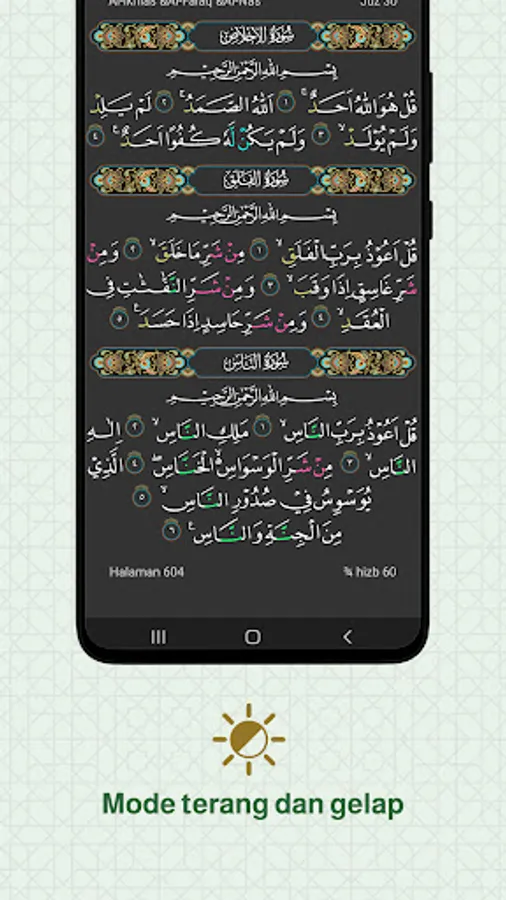 Al-Ikhlas &Al-Falaq &An-Nas Juz 30
سُورَةُ الْاِخْلَاصِ
بِسْمِ اللّٰهِ الرَّحْمٰنِ الرَّحِيْمِ
قُلْ هُوَ اللّٰهُ اَحَدٌۚ ١ اَللّٰهُ الصَّمَدُۚ ٢ لَمْ يَلِدْ
وَلَمْ يُوْلَدْۙ ٣ وَلَمْ يَكُنْ لَّهٗ كُفُوًا اَحَدٌۚ ٤
سُورَةُ الْفَلَقِ
بِسْمِ اللّٰهِ الرَّحْمٰنِ الرَّحِيْمِ
قُلْ اَعُوْذُ بِرَبِّ الْفَلَقِۙ ١ مِنْ شَرِّ مَا خَلَقَۙ ٢ وَمِنْ
شَرِّ غَاسِقٍ اِذَا وَقَبَۙ ٣ وَمِنْ شَرِّ النَّفّٰثٰتِ فِى
الْعُقَدِۙ ٤ وَمِنْ شَرِّ حَاسِدٍ اِذَا حَسَدَۚ ٥
سُورَةُ النَّاسِ
بِسْمِ اللّٰهِ الرَّحْمٰنِ الرَّحِيْمِ
قُلْ اَعُوْذُ بِرَبِّ النَّاسِۙ ١ مَلِكِ النَّاسِۙ ٢ اِلٰهِ
النَّاسِۙ ٣ مِنْ شَرِّ الْوَسْوَاسِ ەۙ الْخَنَّاسِۖ ٤ الَّذِيْ
يُوَسْوِسُ فِيْ صُدُوْرِ النَّاسِۙ ٥
مِنَ الْجِنَّةِ وَالنَّاسِࣖ ٦
Halaman 604 ¾ hizb 60
Mode terang dan gelap